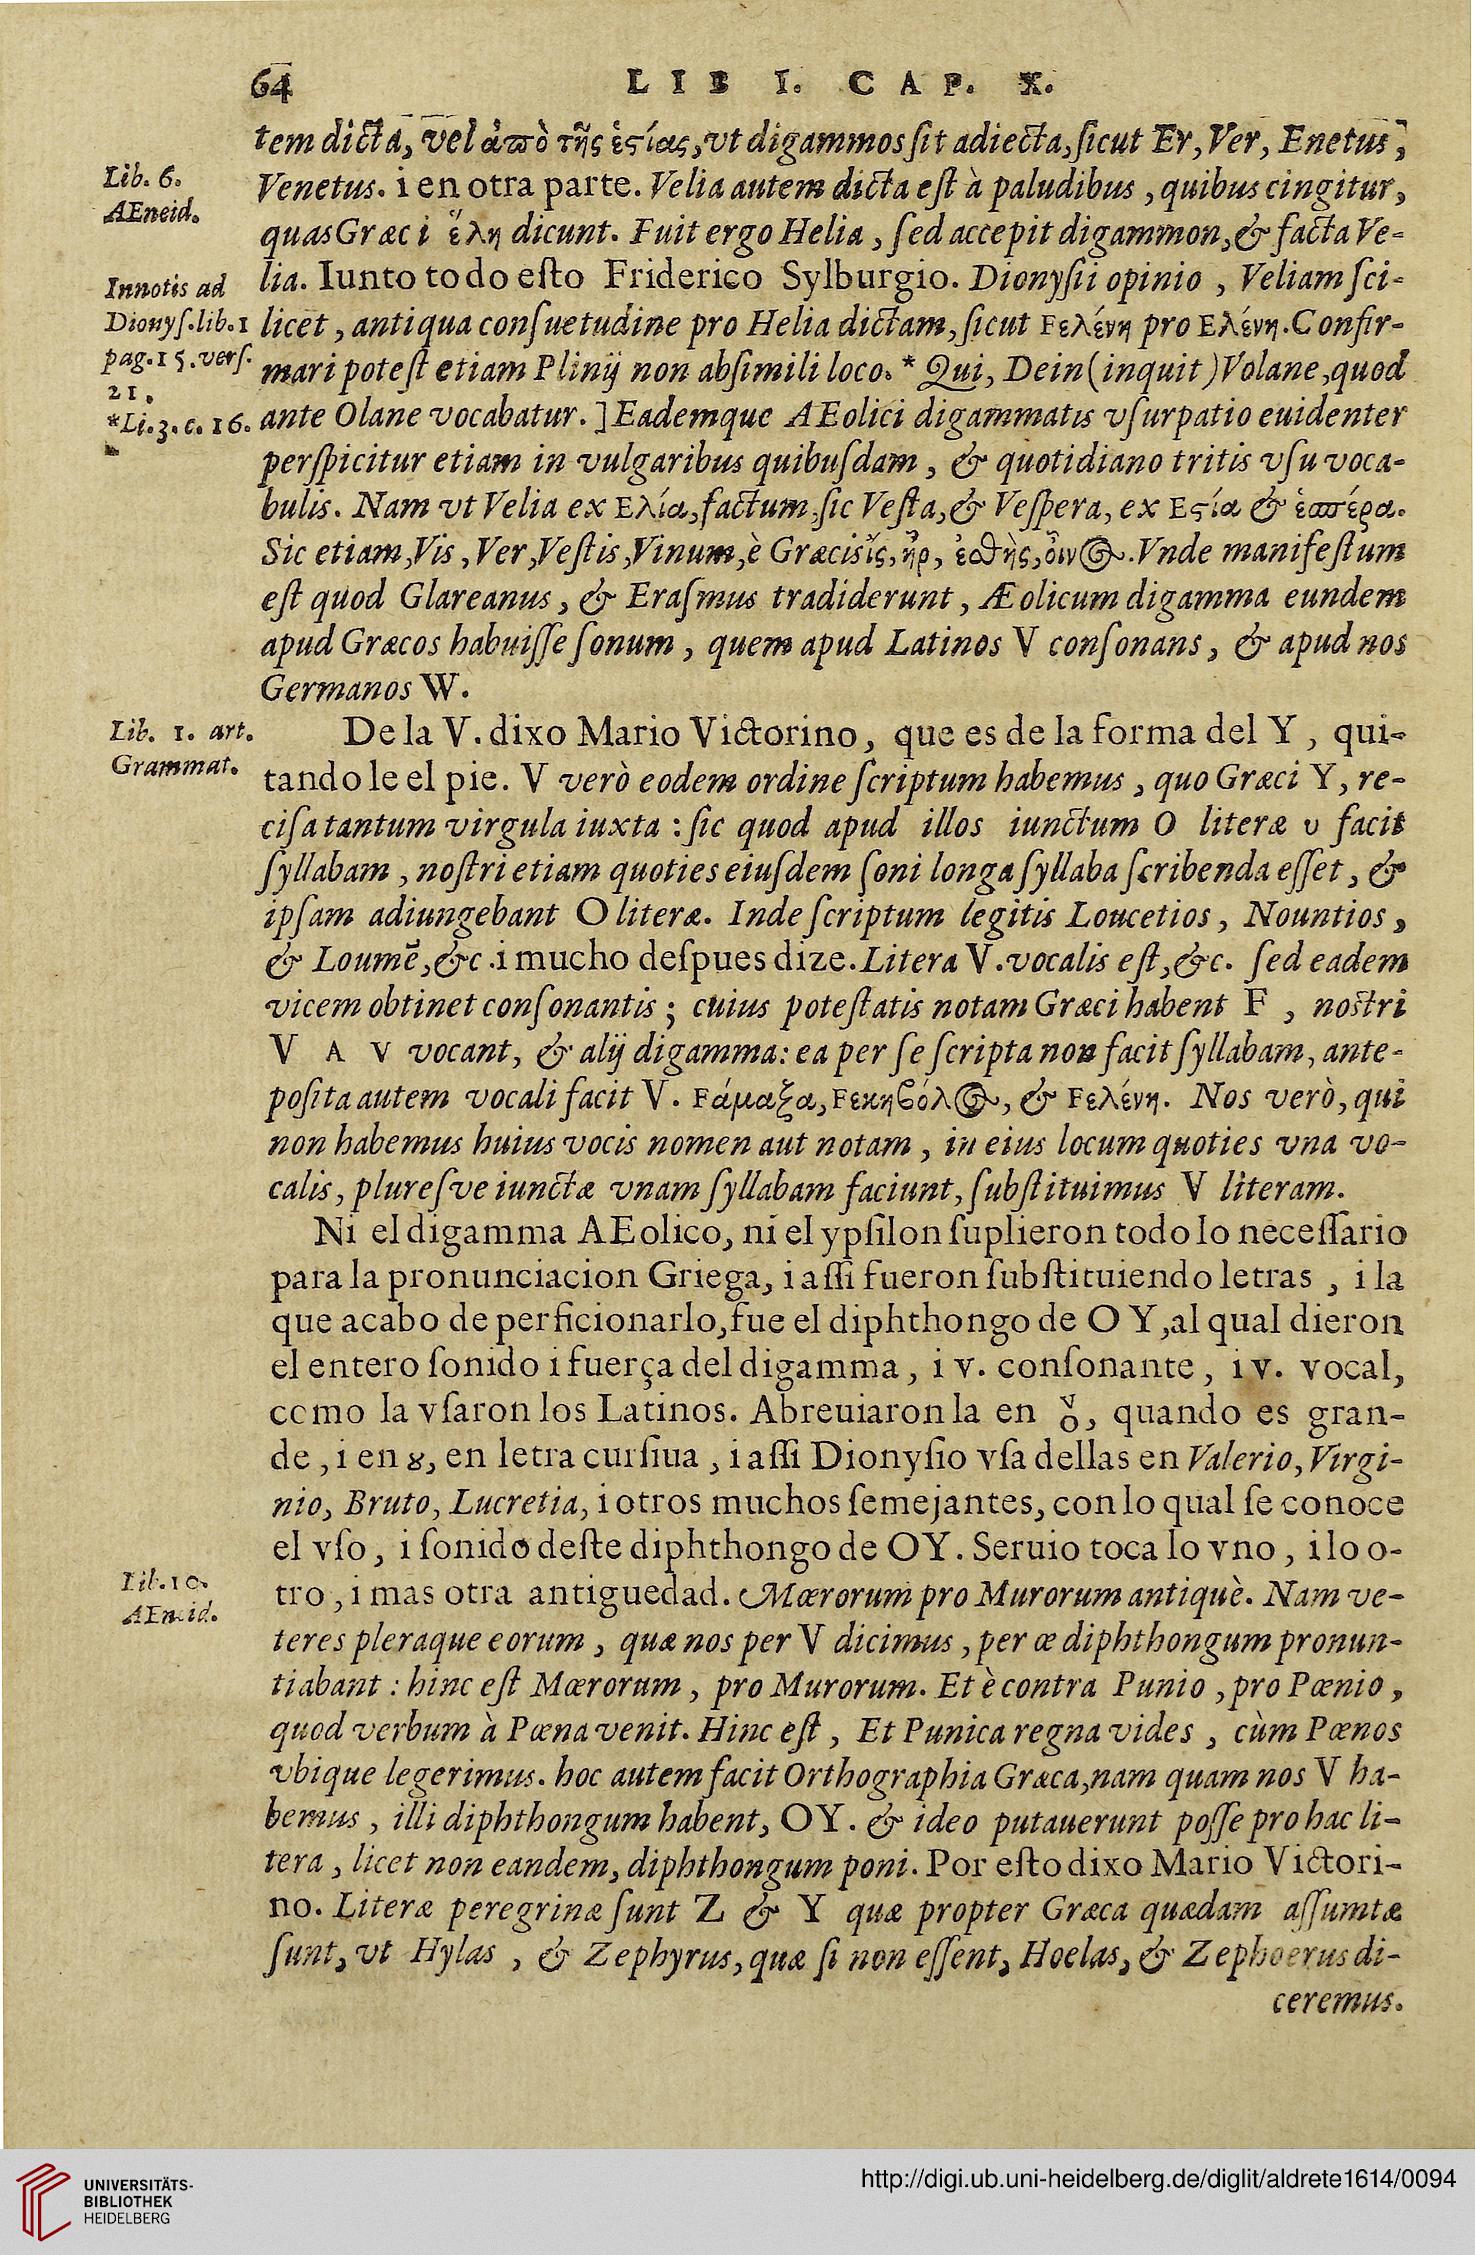 64 LIB I. CAP. X.
tem dicta, vel ἀπὸ τῆς ἑστίας, vt digammos ſit adiecta, ſicut Er, Ver, Enetus,
Lib. 6.
AEneid.
Venetus. i en otra parte. Velia autem dicta eſt à paludibus, quibus cingitur,
quas Græci ἕλη dicunt. Fuit ergo Helia, ſed accepit digammon, & facta Ve-
Innotis ad
Dionyſ. lib. 1
pag. 15. verſ.
21.
*Li. 3. c. 16.
lia. Iunto todo eſto Friderico Sylburgio. Dionyſii opinio, Veliam ſci-
licet, antiqua conſuetudine pro Helia dictam, ſicut Fελένη pro Ελένη. Confir-
mari poteſt etiam Plinij non abſimili loco. * Qui, Dein (inquit) Volane, quod
ante Olane vocabatur. ] Eademque AEolici digammatis vſurpatio euidenter
perſpicitur etiam in vulgaribus quibuſdam, & quotidiano tritis vſu voca-
bulis. Nam vt Velia ex Ελία, factum, ſic Veſta, & Veſpera, ex Εστία & ἑσπέρα.
Sic etiam, Vis, Ver, Veſtis, Vinum, è Græcis ἲς, ἦρ, ἐσθὴς, οἶνος. Vnde manifeſtum
eſt quod Glareanus, & Eraſmus tradiderunt, Æolicum digamma eundem
apud Græcos habuiſſe ſonum, quem apud Latinos V conſonans, & apud nos
Germanos W.
Lib. 1. art.
Grammat.
De la V. dixo Mario Victorino, que es de la forma del Y, qui-
tandole el pie. V verò eodem ordine ſcriptum habemus, quo Græci Y, re-
ciſa tantum virgula iuxta: ſic quod apud illos iunctum O literæ υ facit
ſyllabam, noſtri etiam quoties eiuſdem ſoni longa ſyllaba ſcribenda eſſet, &
ipſam adiungebant O literæ. Inde ſcriptum legitis Loucetios, Nountios,
& Loumē, &c. i mucho deſpues dize. Litera V. vocalis eſt, &c. ſed eadem
vicem obtinet conſonantis; cuius poteſtatis notam Græci habent F, noſtri
V A V vocant, & alij digamma: ea per ſe ſcripta non facit ſyllabam, ante-
poſita autem vocali facit V. Fάμαξα, Fεκηβόλος, & Fελένη. Nos verò, qui
non habemus huius vocis nomen aut notam, in eius locum quoties vna vo-
calis, plureſve iunctæ vnam ſyllabam faciunt, ſubſtituimus V literam.
Ni el digamma AEolico, ni el ypſilon ſuplieron todo lo neceſſario
para la pronunciacion Griega, i aſſi fueron ſubſtituiendo letras, i la
que acabo de perficionarlo, fue el diphthongo de OY, al qual dieron
el entero ſonido i fuerça del digamma, i v. conſonante, i v. vocal,
como la vſaron los Latinos. Abreuiaronla en Ȣ, quando es gran-
de, i en ȣ, en letra curſiua, i aſſi Dionyſio vſa dellas en Valerio, Virgi-
nio, Bruto, Lucretia, i otros muchos ſemejantes, con lo qual ſe conoce
el vſo, i ſonido deſte diphthongo de OY. Seruio toca lo vno, i lo o-
Lib. 10.
AEneid.
tro, i mas otra antiguedad. Mœrorum pro Murorum antiquè. Nam ve-
teres pleraque eorum, quæ nos per V dicimus, per œ diphthongum pronun-
tiabant: hinc eſt Mœrorum, pro Murorum. Et è contra Punio, pro Pœnio,
quod verbum à Pœna venit. Hinc eſt, Et Punica regna vides, cùm Pœnos
vbique legerimus. hoc autem facit Orthographia Græca, nam quam nos V ha-
bemus, illi diphthongum habent, OY. & ideo putauerunt poſſe pro hac li-
tera, licet non eandem, diphthongum poni. Por eſto dixo Mario Victori-
no. Literæ peregrinæ ſunt Z & Y quæ propter Græca quædam aſſumtæ
ſunt, vt Hylas, & Zephyrus, quæ ſi non eſſent, Hoelas, & Zephoerus di-
ceremus.
UNIVERSITÄTS-
BIBLIOTHEK
HEIDELBERG
http://digi.ub.uni-heidelberg.de/diglit/aldrete1614/0094